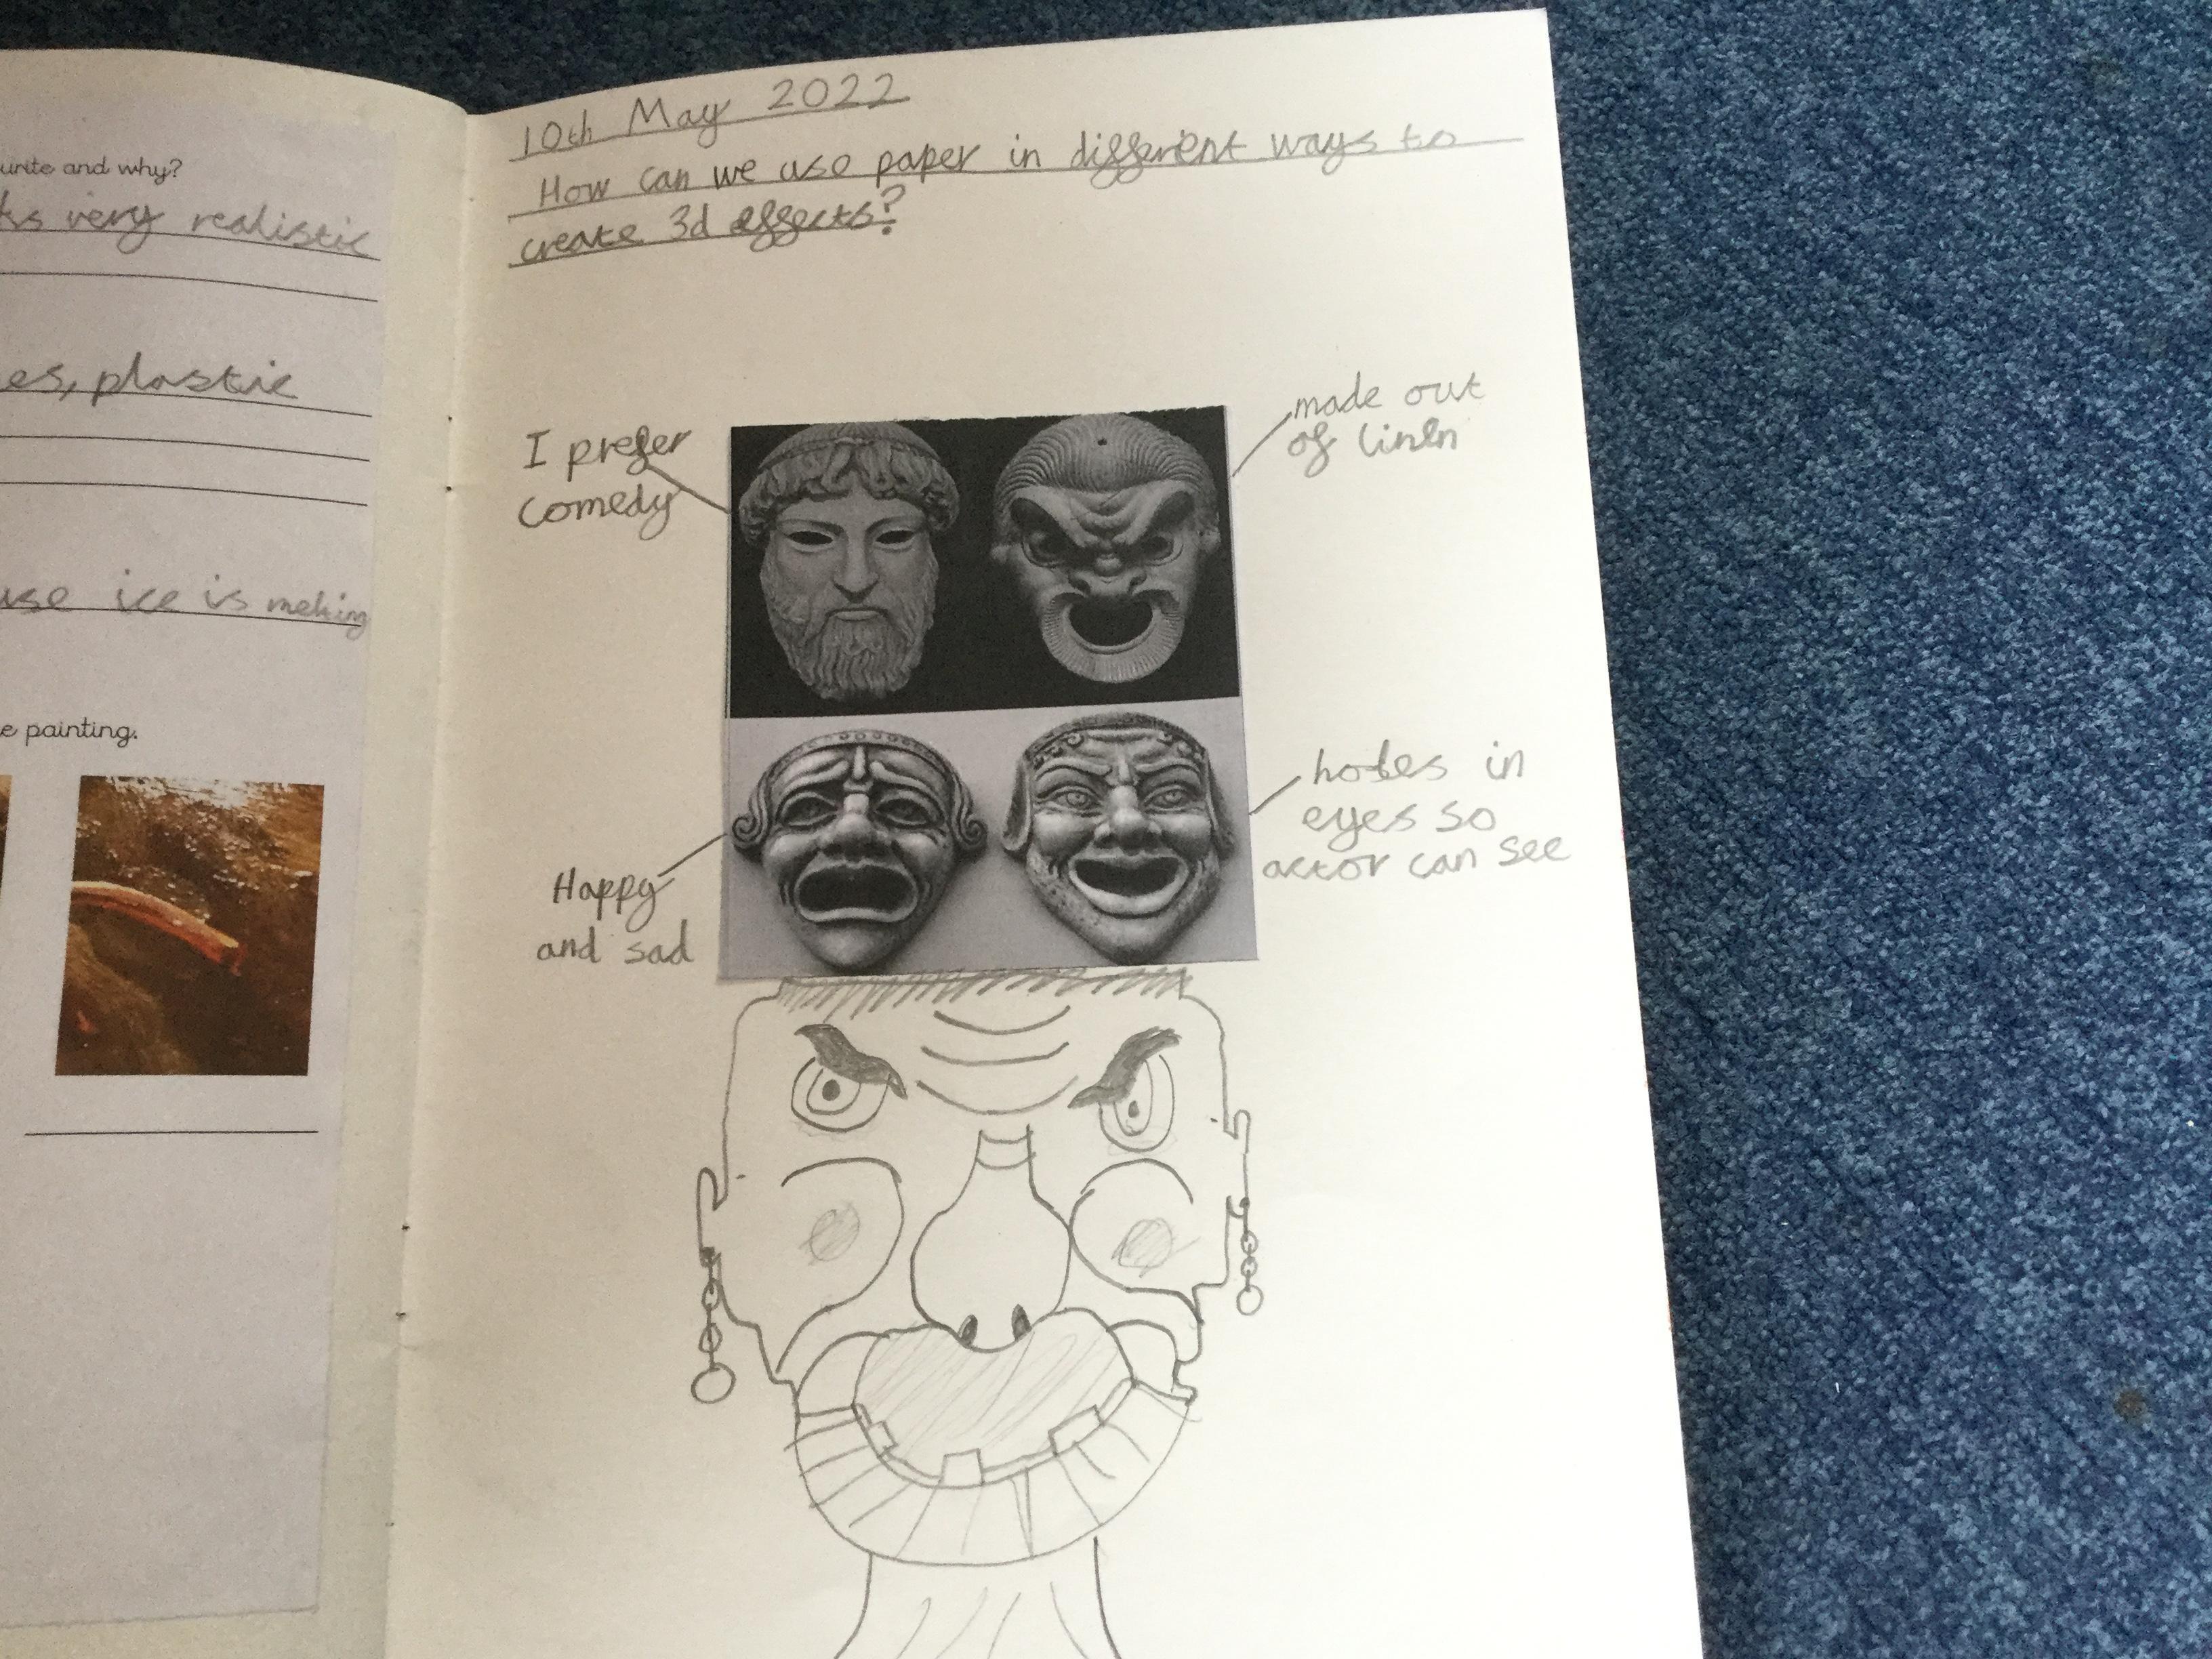 urite and why?
ks very realistic
es, plastic
use ice is melting
e painting.
10th May 2022
How can we use paper in different ways to
create 3d effects?
I prefer
comedy
made out
of linen
Happy
and sad
holes in
eyes so
actor can see